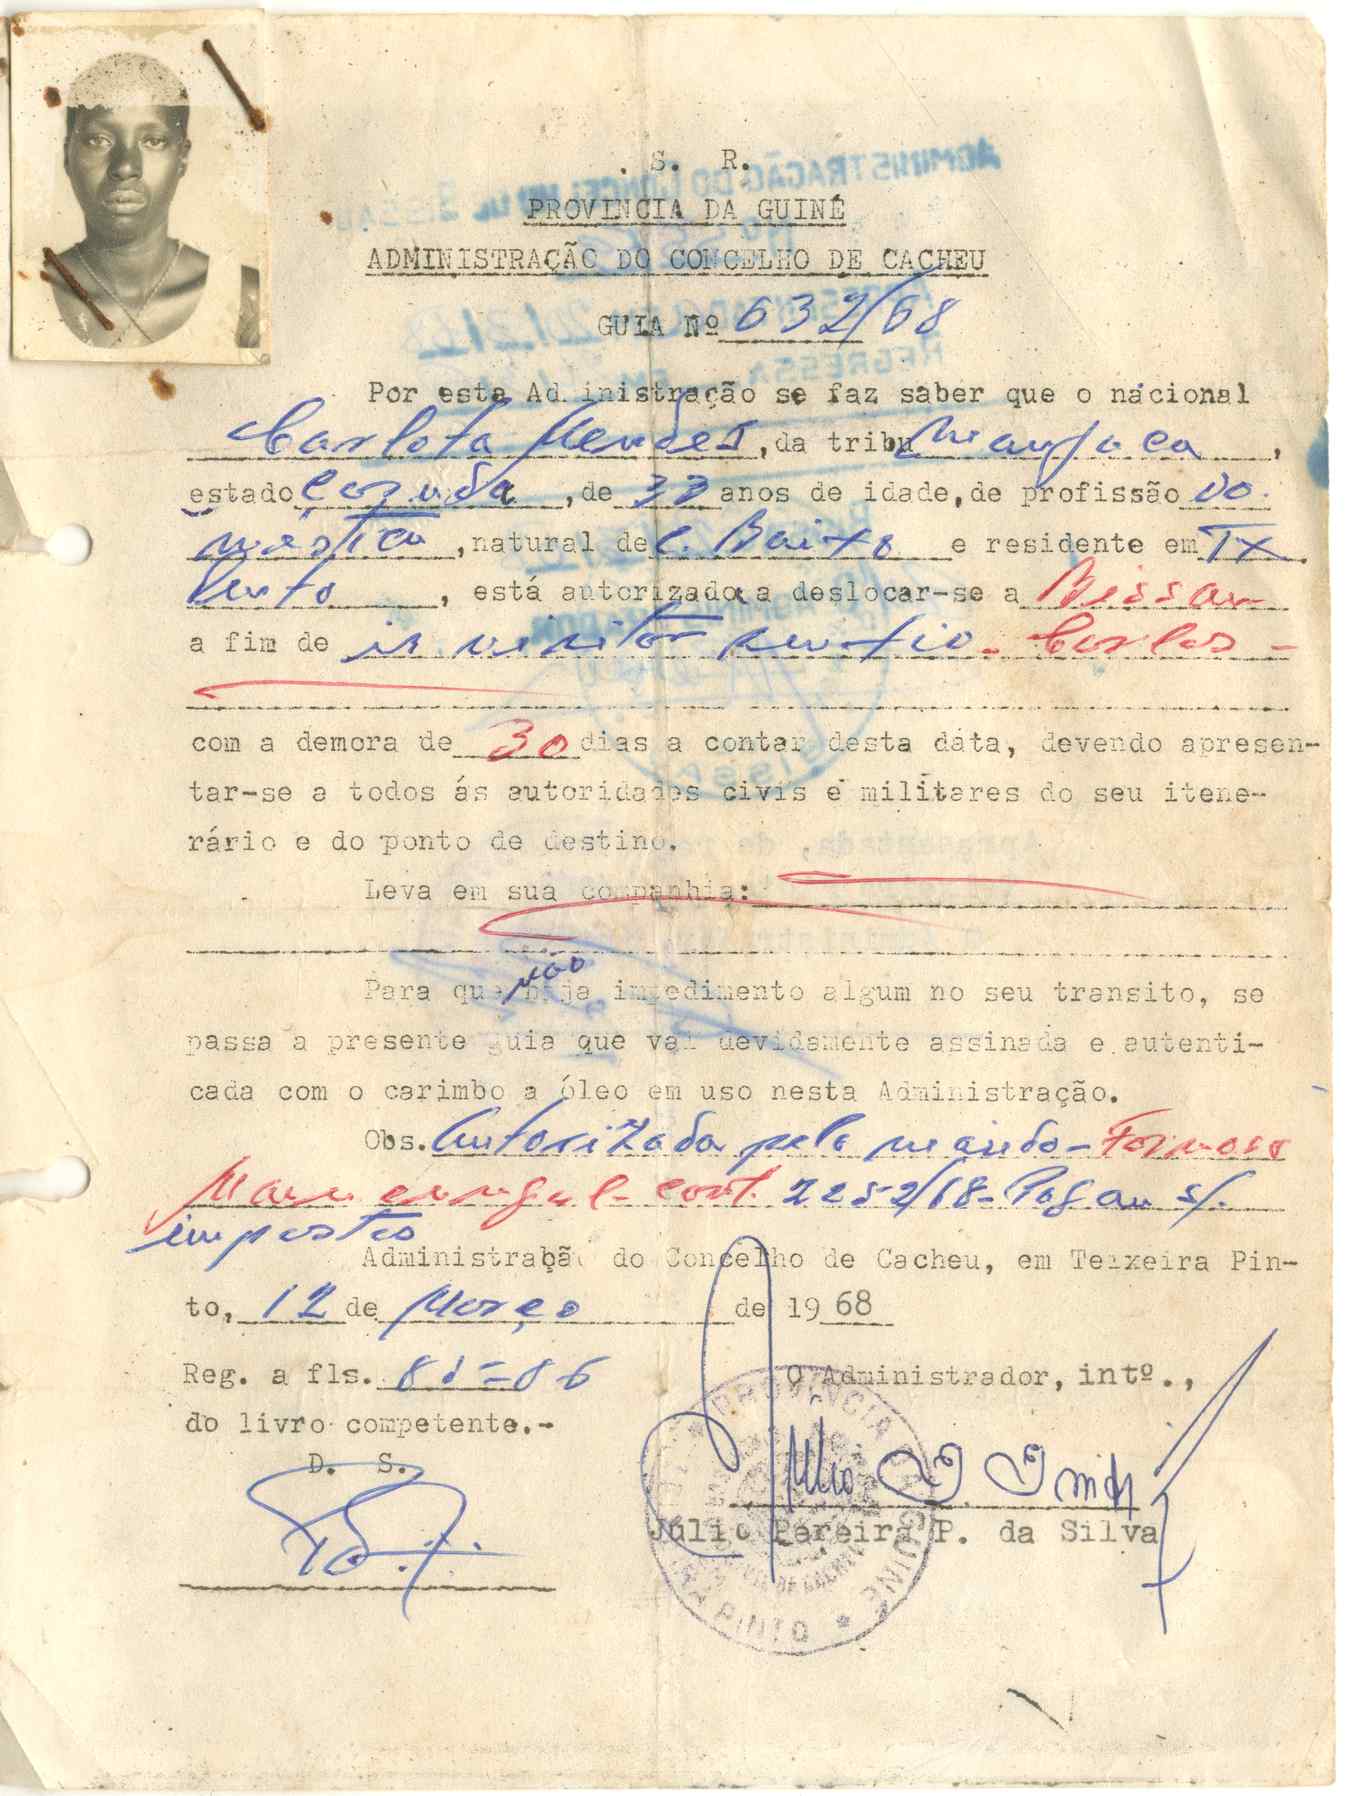 . S. R.
PROVINCIA DA GUINÉ
ADMINISTRAÇÃO DO CONCELHO DE CACHEU
GUIA Nº 632/68
Por esta Ad inistração se faz saber que o nacional
Carlota Mendes, da tribu Manjaca,
estado Cazada, de 33 anos de idade, de profissão Do-
méstica, natural de C. Baixo e residente em Tx
Pinto, está autorizada a deslocar-se a Bissau
a fim de ir visitar seu tio - Carlos -
com a demora de 30 dias a contar desta dáta, devendo apresen-
tar-se a todos ás autoridades civis e militares do seu itene-
rário e do ponto de destino.
Leva em sua companhia:
Para que não haja impedimento algum no seu transito, se
passa a presente guia que vai devidamente assinada e autenti-
cada com o carimbo a óleo em uso nesta Administração.
Obs. Autorizada pelo marido - Formoso
cont. 2252/68 - Pagou s/.
impostos
Administrabão do Concelho de Cacheu, em Teixeira Pin-
to, 12 de Março de 1968
Reg. a fls. 85-86
O Administrador, intº.,
do livro competente.-
D. S.
Júlio Pereira P. da Silva
PROVINCIA DA GUINÉ